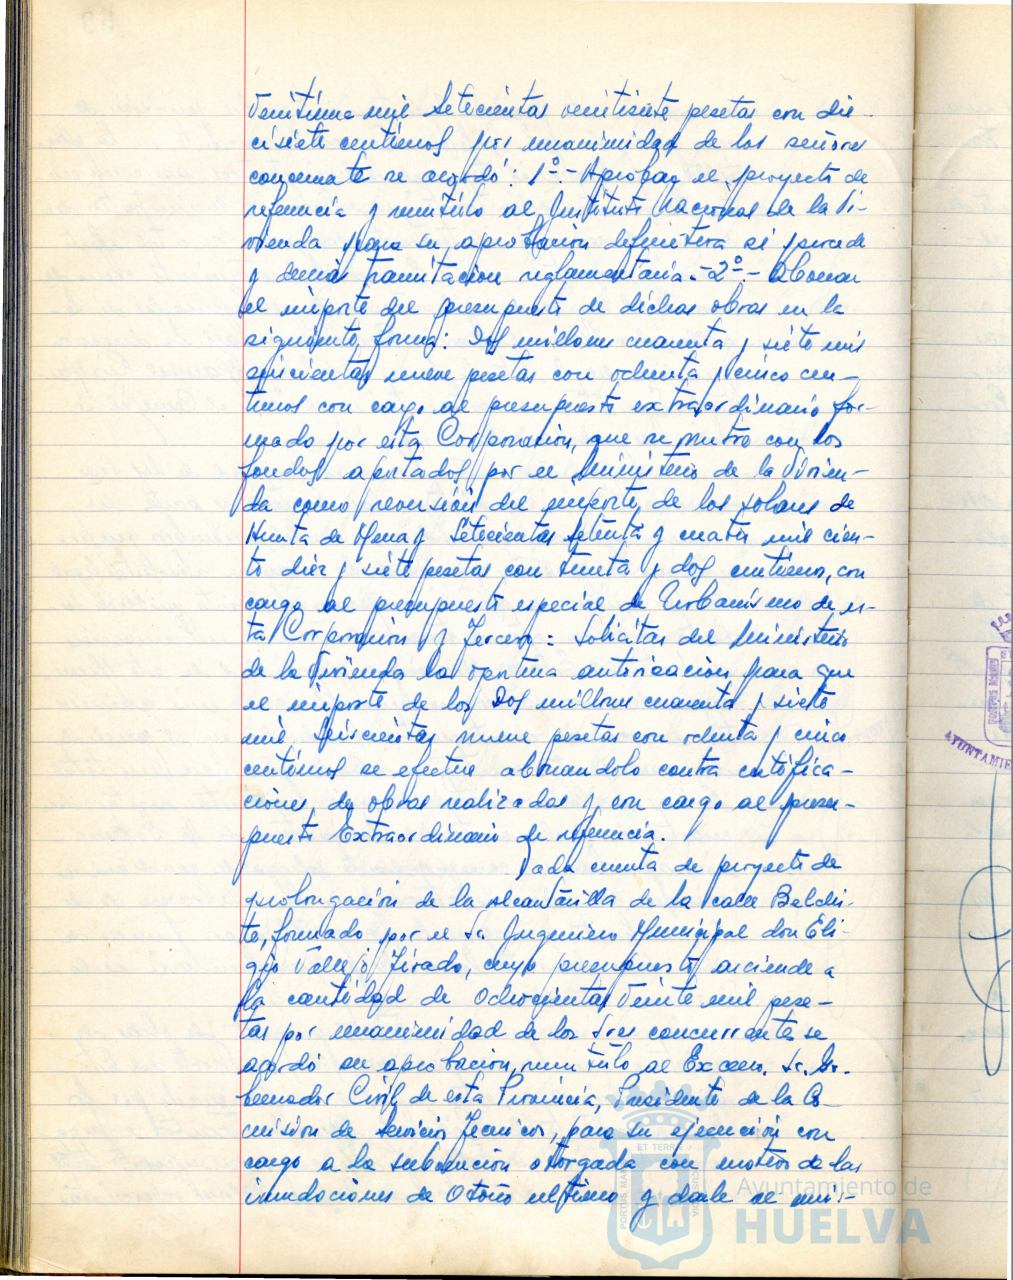 Veintiuna mil setecientas veintisiete pesetas con die-
cisiete centimos por unanimidad de los señores
concurrentes se acordó: 1º.- Aprobar el proyecto de
referencia y remitirlo al Instituto Nacional de la Vi-
vienda para su aprobación definitiva si procede
y demás tramitacion reglamentaria.- 2º.- Abonar
el importe del presupuesto de dichas obras en la
siguiente forma: Dos millones cuarenta y siete mil
seiscientas nueve pesetas con ochenta y cinco cen-
timos con cargo al presupuesto extraordinario for-
mado por esta Corporación, que se nutre con los
fondos aportados por el Ministerio de la Vivien-
da como reversión del importe de los solares de
Huerta de Mena y Setecientas setenta y cuatro mil cien-
to diez y siete pesetas con treinta y dos centimos, con
cargo al presupuesto especial de Urbanismo de es-
ta Corporación y Tercero: Solicitar del Ministerio
de la Vivienda la oportuna autorización para que
el importe de los Dos millones cuarenta y siete
mil seiscientas nueve pesetas con ochenta y cinco
centimos se efectue abonandolo contra certifica-
ciones de obras realizadas y con cargo al presu-
puesto Extraordinario de referencia.
Dada cuenta de proyecto de
prolongación de la alcantarilla de la calle Belchi-
te, formado por el Sr Ingeniero Municipal don Eli-
gio Vallejo Tirado, cuyo presupuesto asciende a
la cantidad de Ochocientas Veinte mil pese-
tas por unanimidad de los Sres concurrentes se
acordó su aprobación, remitirlo al Excmo. Sr. Go-
bernador Civil de esta Provincia, Presidente de la Co-
mision de Servicios Tecnicos, para su ejecución con
cargo a la subvención otorgada con motivo de las
inundaciones de Otoño ultimo y darle al mis-
AYUNTAMIE
Ayuntamiento de
HUELVA